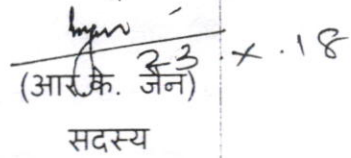 23.x.18
(आर.के. जैन)
सदस्य